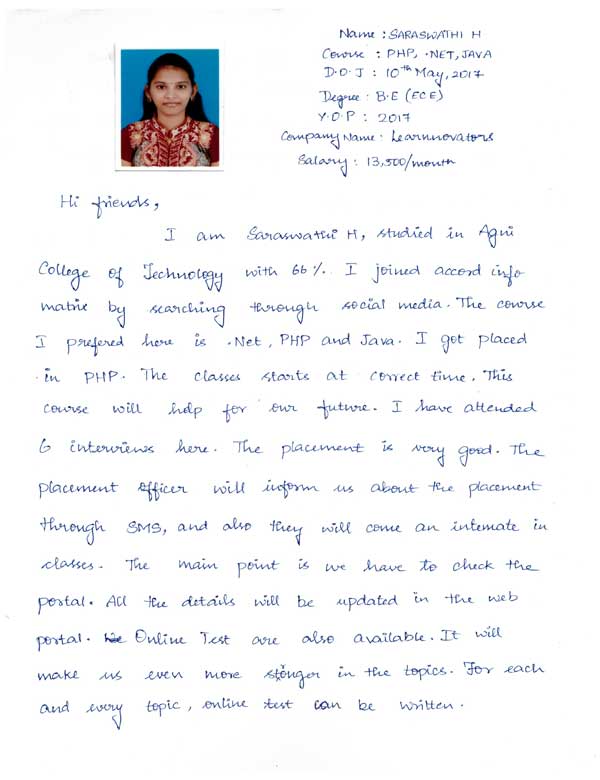 Name : SARASWATHI H
Course : PHP, .NET, JAVA
D.O.J : 10th May, 2017
Degree : B.E (ECE)
Y.O.P : 2017
Company Name : Learnnovators
Salary : 13,500/month
Hi friends,
I am Saraswathi H, studied in Agni
College of Technology with 66%. I joined accord info
matrix by searching through social media. The course
I prefered here is .Net, PHP and Java. I got placed
in PHP. The classes starts at correct time. This
course will help for our future. I have attended
6 interviews here. The placement is very good. The
placement officer will inform us about the placement
through SMS, and also they will come an intemate in
classes. The main point is we have to check the
portal. All the details will be updated in the web
portal. Online Test are also available. It will
make us even more stonger in the topics. For each
and every topic, online test can be written.